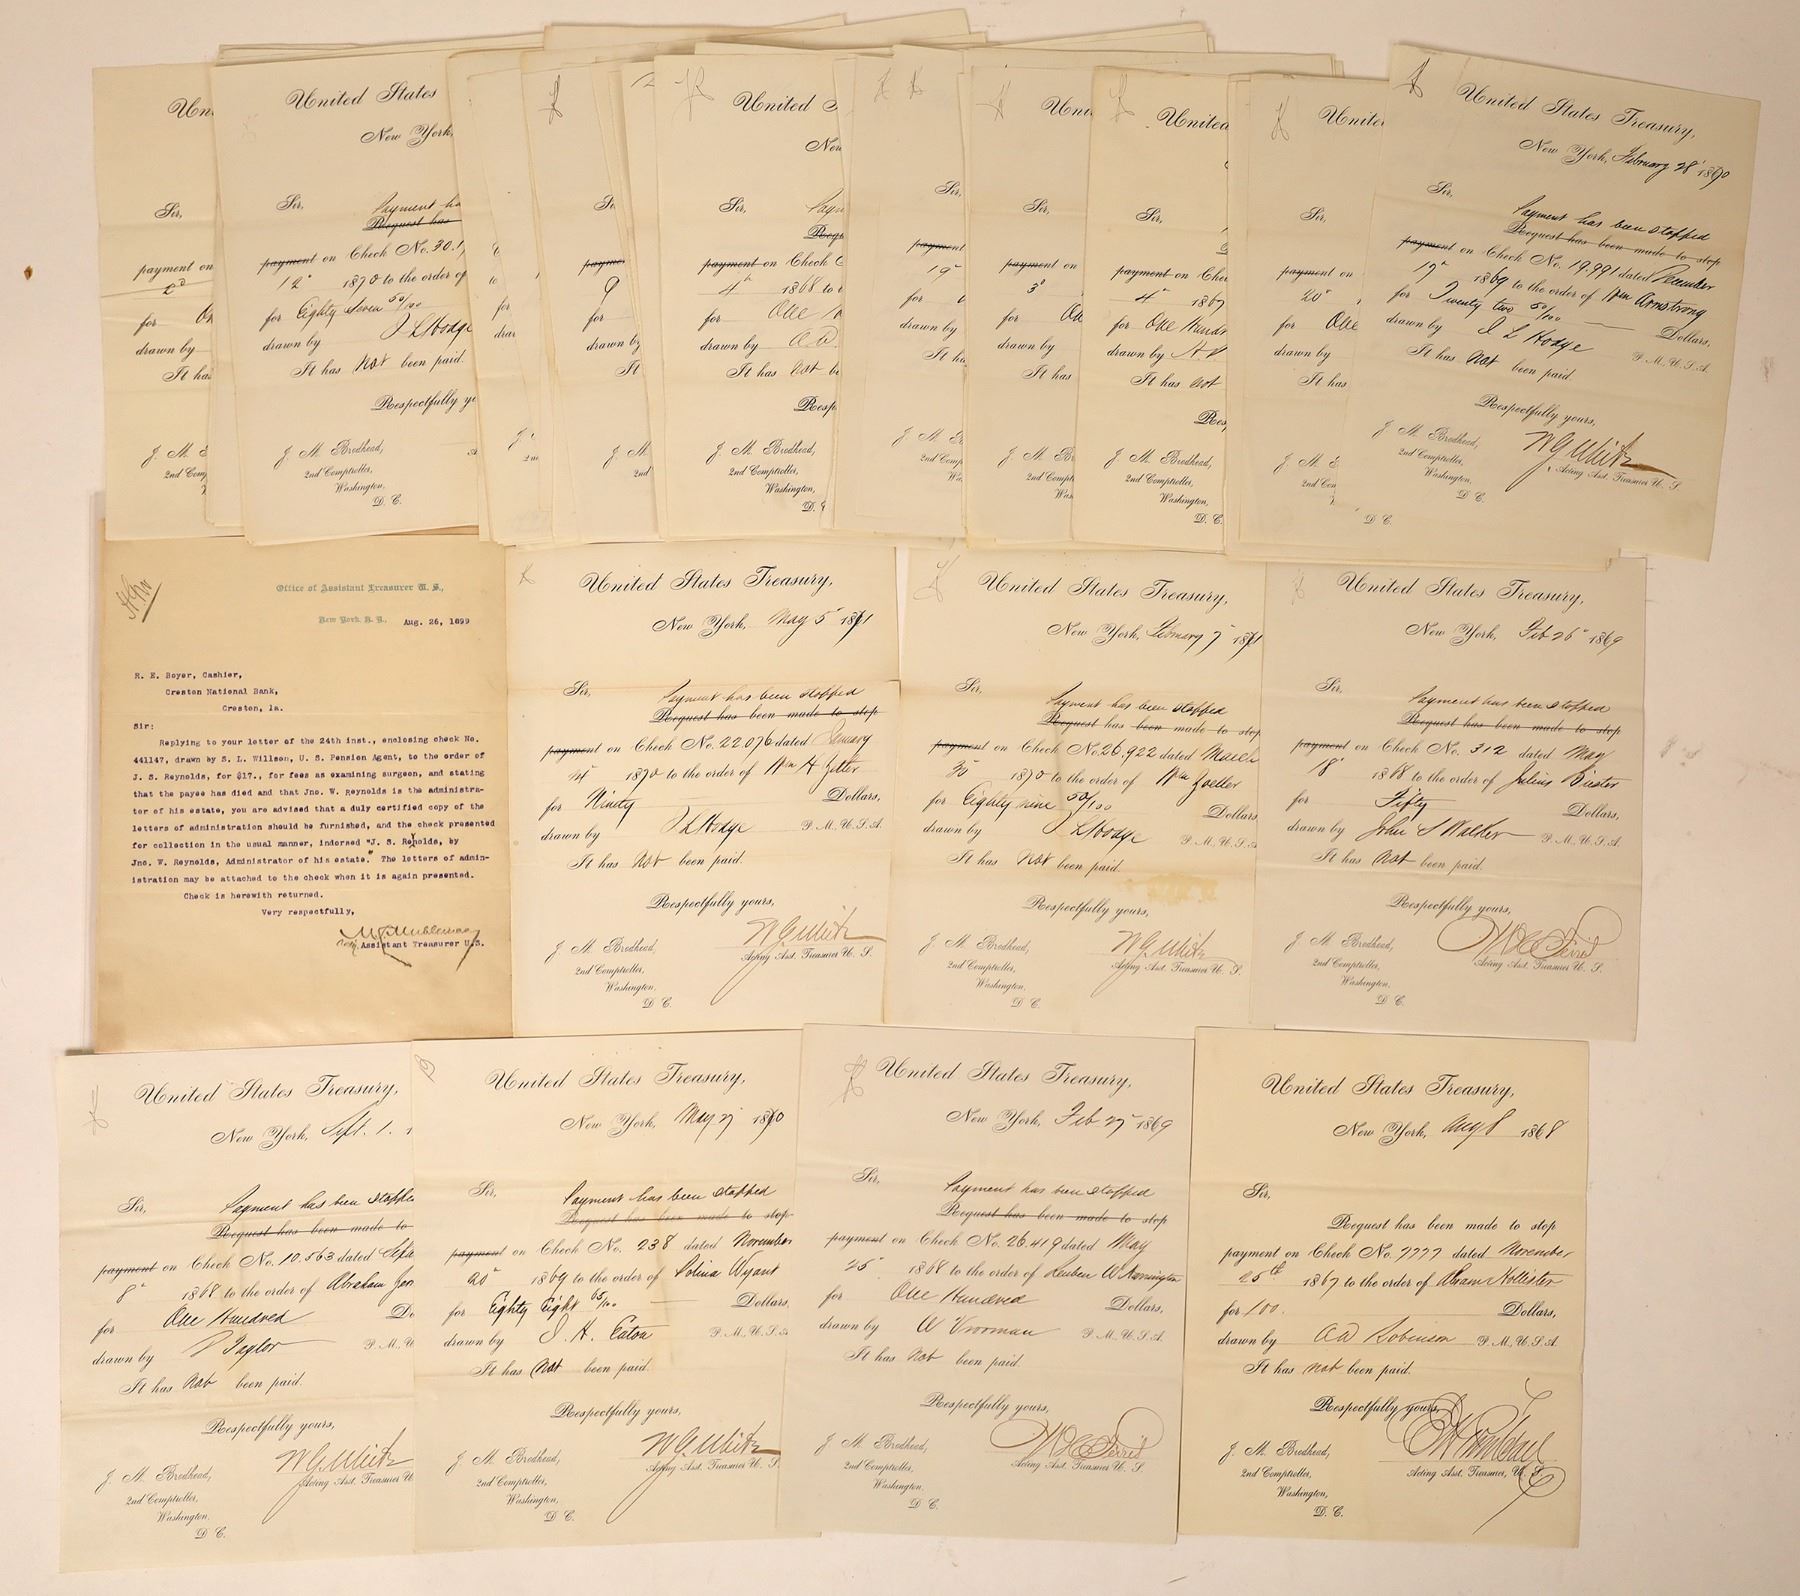 Un
payment on
2d
for On
drawn by
It has
J. M. B
2nd Comp
United States
New York,
Sir,
Payment ha
Request has
payment on Check No. 30.1
12" 1870 to the order of
for Eighty seven 50/100
drawn by J L Hodge
It has not been paid.
Respectfully yo
J. M. Brodhead,
2nd Comptroller,
Washington,
D. C.
for
drawn
payment
9
for
drawn by
It
J. M.
2nd
United S
New
Sir,
Paym
Requ
payment on Check
4th 1868 to
for One
drawn by A W
It has not be
Resp
J. M. Brodhead,
2nd Comptroller,
Washington,
D. C
Sir,
payment
19"
for
drawn by
It ha
J. M.
2nd Comp
Wa
Uni
Sir,
payment on
3"
for On
drawn by
It has
J. M. Brodhead,
2nd Compt
Was
United
Sir,
payment on Che
4" 1867
for One Hundr
drawn by
It has not
Resp
J. M. Brodhead,
2nd Comptroller,
Washington,
D. C.
Unite
Sir,
payment on
20"
for One
drawn by
It has
J. M. B
2nd Com
D. C.
United States Treasury,
New York, February 28" 1870
Sir,
Payment has been stopped
Request has been made to stop
payment on Check No. 19,991 dated December
17" 1869 to the order of Wm Armstrong
for Twenty two 50/100 Dollars,
drawn by J L Hodge P. M., U. S. A.
It has not been paid.
Respectfully yours,
J. M. Brodhead,
2nd Comptroller,
Washington,
D. C.
Acting Asst. Treasurer U. S.
Office of Assistant Treasurer U. S.,
New York, N. Y., Aug. 26, 1899
R. E. Boyer, Cashier,
Creston National Bank,
Creston, Ia.
Sir:
Replying to your letter of the 24th inst., enclosing check No.
441147, drawn by S. L. Willson, U. S. Pension Agent, to the order of
J. S. Reynolds, for $17., for fees as examining surgeon, and stating
that the payee has died and that Jno. W. Reynolds is the administra-
tor of his estate, you are advised that a duly certified copy of the
letters of administration should be furnished, and the check presented
for collection in the usual manner, indorsed "J. S. Reynolds, by
Jno. W. Reynolds, Administrator of his estate." The letters of admin-
istration may be attached to the check when it is again presented.
Check is herewith returned.
Very respectfully,
Assistant Treasurer U.S.
United States Treasury,
New York, May 5" 1871
Sir,
Payment has been stopped
Request has been made to stop
payment on Check No. 22.076 dated January
1870 to the order of Wm H Zeller
for Ninety Dollars,
drawn by J L Hodge P. M., U. S. A.
It has not been paid.
Respectfully yours,
J. M. Brodhead,
2nd Comptroller,
Washington,
D. C.
Acting Asst. Treasurer U. S.
United States Treasury,
New York, February 7" 1871
Sir,
Payment has been stopped
Request has been made to stop
payment on Check No. 26,922 dated March
30" 1870 to the order of Wm Zoeller
for Eighty nine 50/100 Dollars
drawn by J L Hodge P. M., U. S. A
It has not been paid.
Respectfully yours,
J. M. Brodhead,
2nd Comptroller,
Washington,
D. C.
Acting Asst. Treasurer U. S.
United States Treasury,
New York, Feb 26" 1869
Sir,
Payment has been stopped
Request has been made to stop
payment on Check No. 312 dated May
18" 1868 to the order of Julius
for Fifty Dollars,
drawn by John S Walker P. M., U. S. A.
It has not been paid.
Respectfully yours,
J. M. Brodhead,
2nd Comptroller,
Washington,
D. C.
Acting Asst. Treasurer U. S.
United States Treasury,
New York, Sept. 1. 1
Sir,
Payment has been stoppe
Request has been made to
payment on Check No. 10.563 dated Septe
8" 1868 to the order of Abraham
for One Hundred Do
drawn by Taylor P. M., U
It has not been paid.
Respectfully yours,
J. M. Brodhead,
2nd Comptroller,
Washington,
D. C.
Acting Asst. Treasurer U
United States Treasury,
New York, May 27 1870
Sir,
Payment has been stopped
Request has been made to stop
payment on Check No. 238 dated November
20" 1869 to the order of Wyant
for Eighty Eight 65/100 Dollars,
drawn by J. H. Eaton P. M., U. S. A
It has not been paid.
Respectfully yours,
J. M. Brodhead,
2nd Comptroller,
Washington,
D. C.
Acting Asst. Treasurer U. S.
United States Treasury,
New York, Feb 27" 1869
Sir,
Payment has been stopped
Request has been made to stop
payment on Check No. 26.419 dated May
25" 1868 to the order of Reuben W
for One Hundred Dollars,
drawn by W Vrooman P. M., U. S. A.
It has not been paid.
Respectfully yours,
J. M. Brodhead,
2nd Comptroller,
Washington,
D. C.
Acting Asst. Treasurer U. S.
United States Treasury,
New York, Aug 8 1868
Sir,
Request has been made to stop
payment on Check No. 7777 dated November
25th 1867 to the order of Abram Hollister
for 100. Dollars,
drawn by A W Robinson P. M., U. S. A.
It has not been paid.
Respectfully yours,
J. M. Brodhead,
2nd Comptroller,
Washington,
D. C.
Acting Asst. Treasurer, U. S.